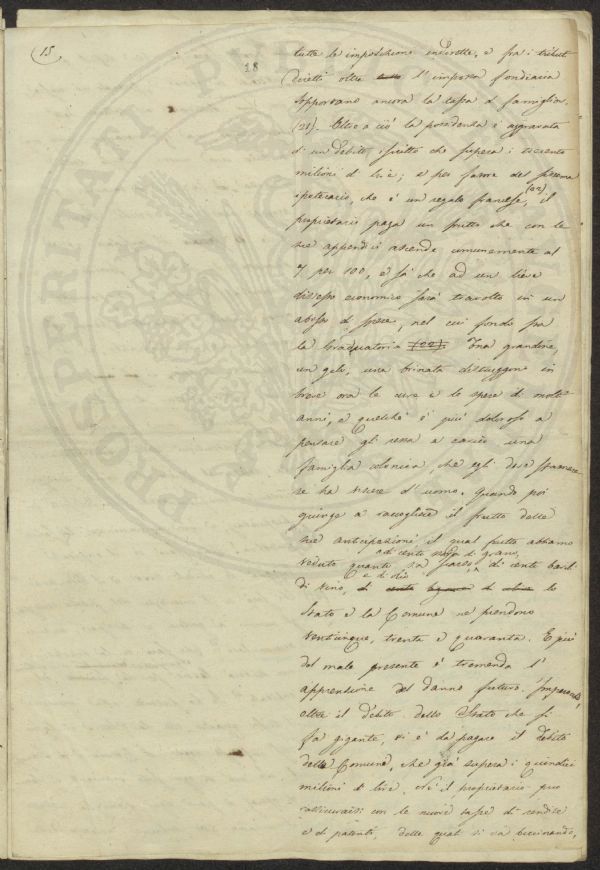 15
18
tutte le imposizioni indirette, e fra i tributi
diretti oltre l'imposta fondiaria
sopportano ancora la tassa di famiglia.
(21). Oltre a ciò la possidenza è aggravata
di un debito iscritto che supera i trecento
milioni di lire; e per favore del sistema
ipotecario, che è un regalo francese, (22) il
proprietario paga un frutto che con le
sue appendici ascende comunemente al
7 per 100, e fa che ad un lieve
dissesto economico sarà travolto in un
abisso di spese, nel cui fondo sta
la Graduatoria (22). Una grandine,
un gelo, una brinata distruggono in
breve ora le cure e le spese di molti
anni, e quelchè è più doloroso a
pensare gli resta a carico una
famiglia colonica, che egli deve sfamare
se ha viscere d'uomo. Quando poi
giunge a raccogliere il frutto delle
sue anticipazioni il qual frutto abbiamo
veduto quanto sia scarso, di cento sacca di grano, di cento barili
di vino, e di olio lo
Stato e la Comune ne prendono
venticinque, trenta e quaranta. E più
del male presente è tremenda l'
apprensione del danno futuro. Imperocchè,
oltre il debito dello Stato che si
fa gigante, vi è da pagare il debito
della Comune, che già supera i quindici
milioni di lire. Nè il proprietario può
rassicurarsi con le nuove tasse di rendite
e di patenti, delle quali si va bucinando,